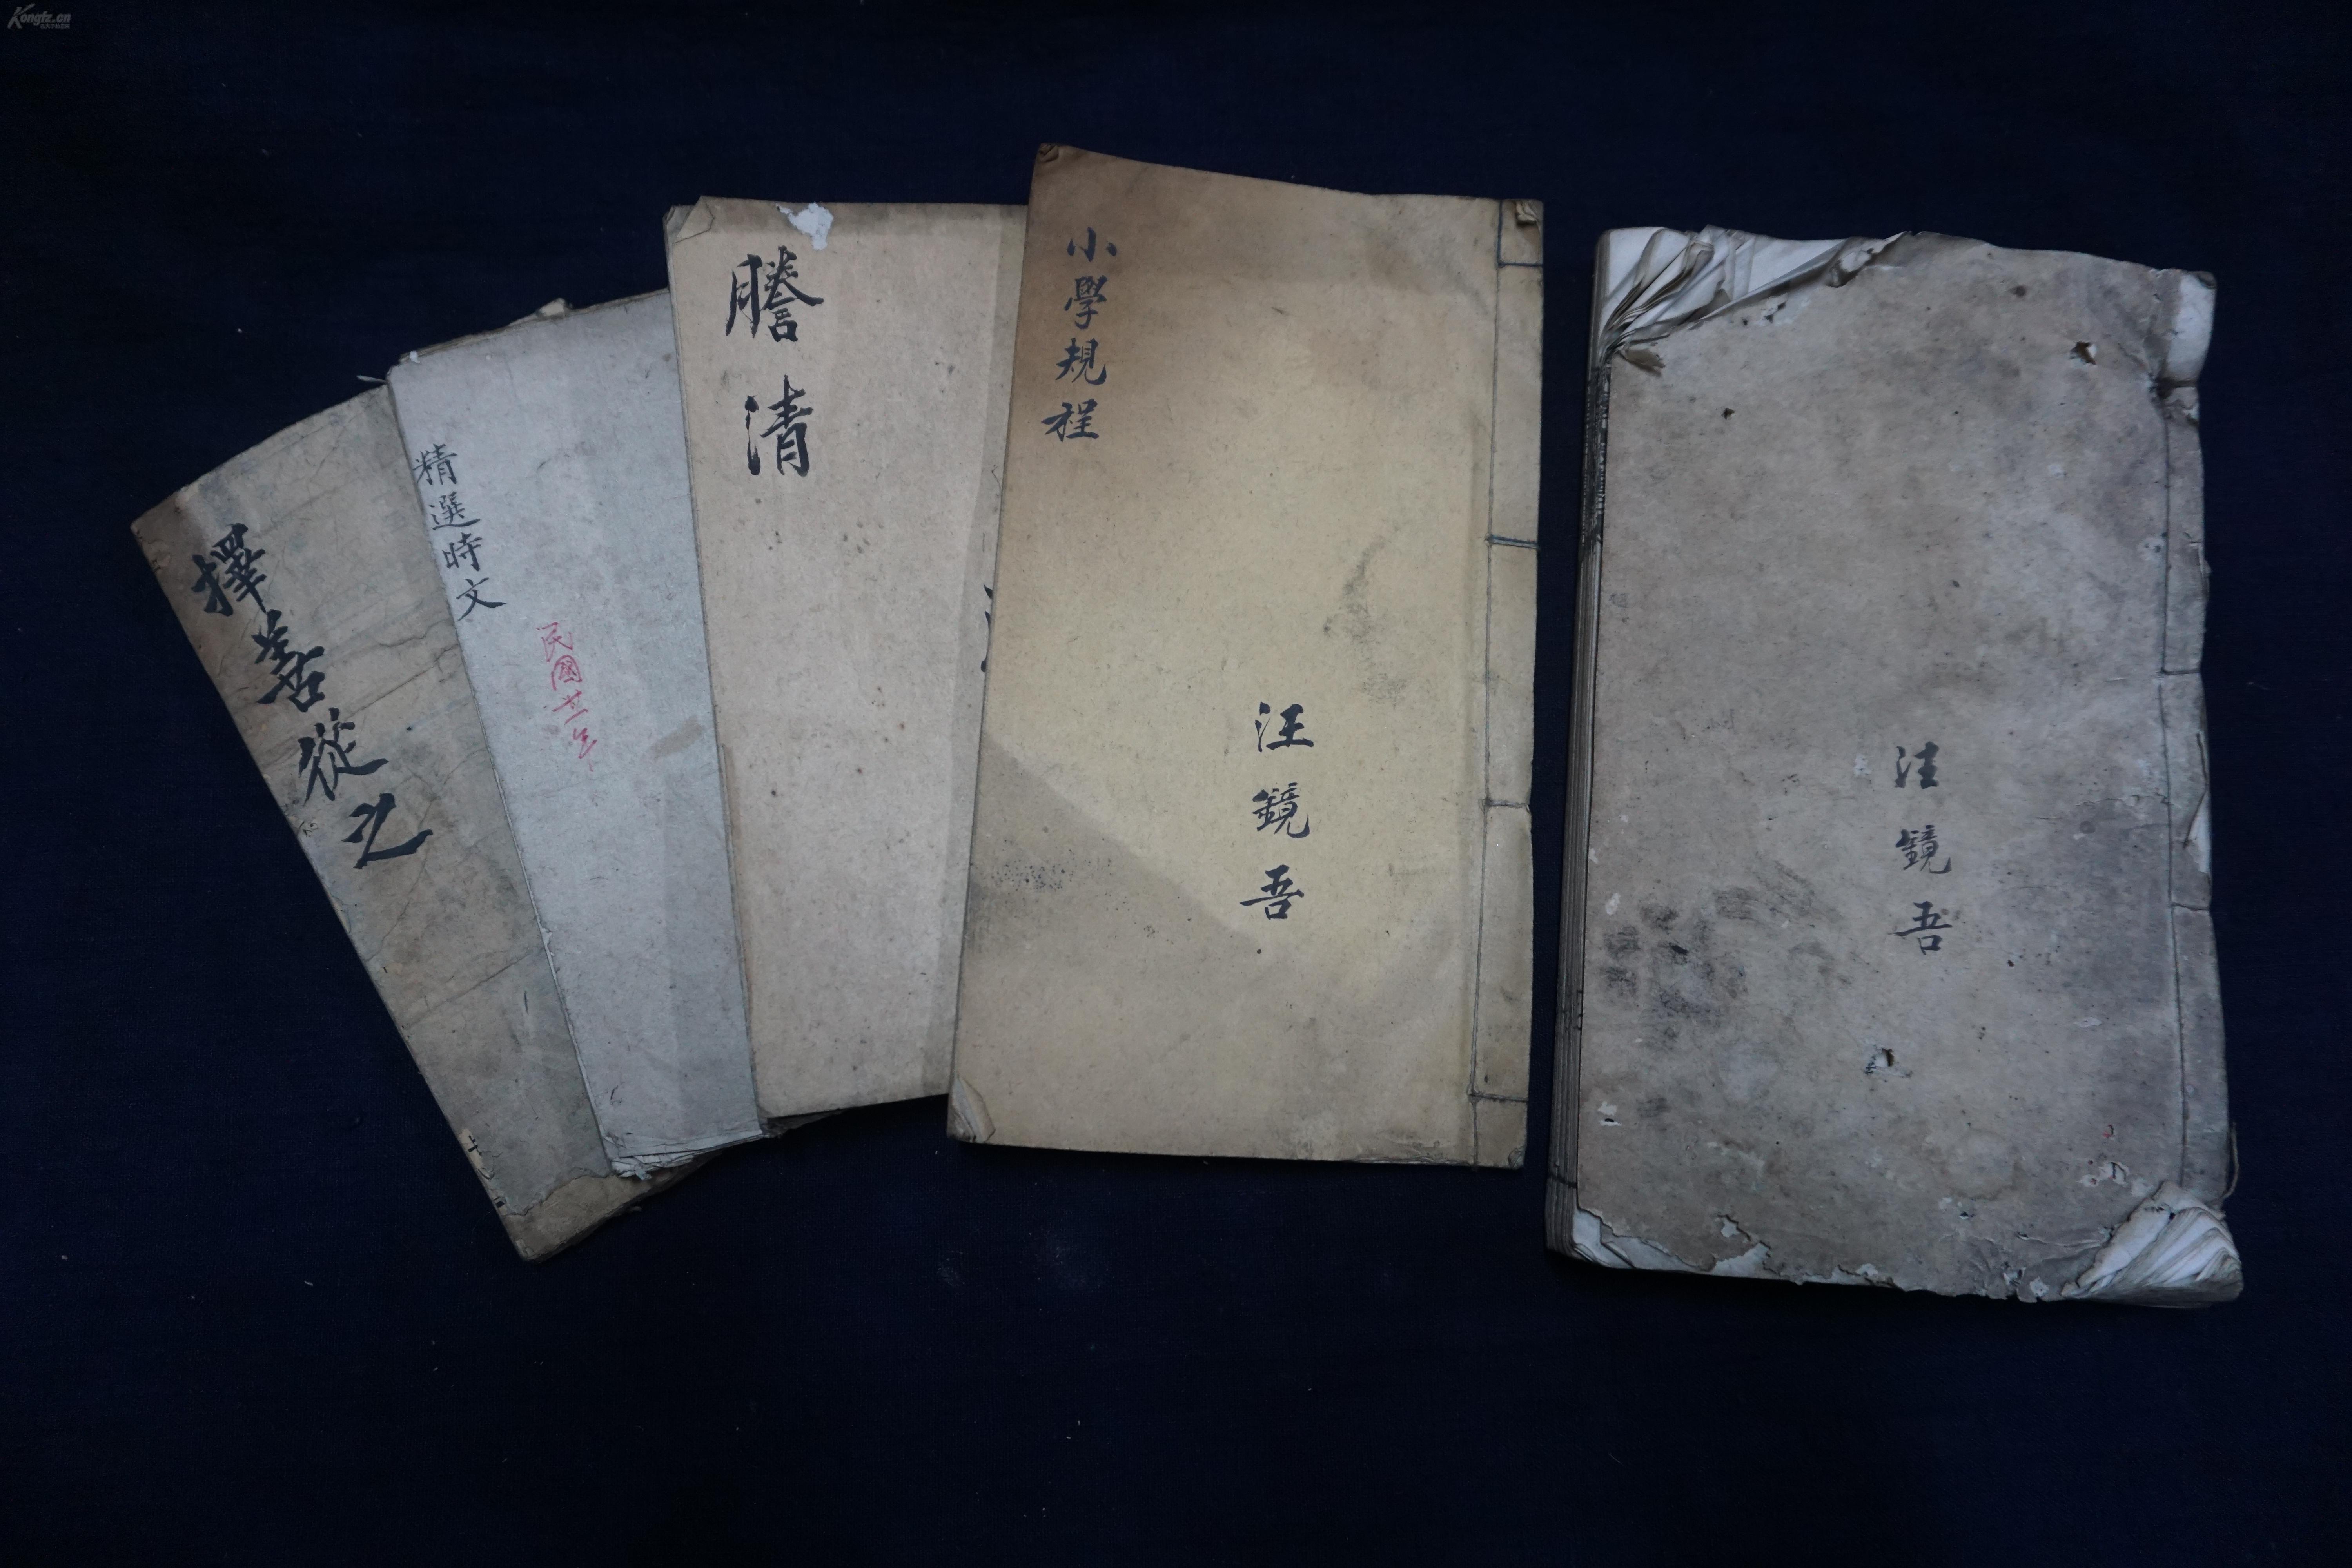 Kongfz.cn
擇善從之
精選時文
民國廿一年
謄清
小學規程
汪鏡吾
汪鏡吾